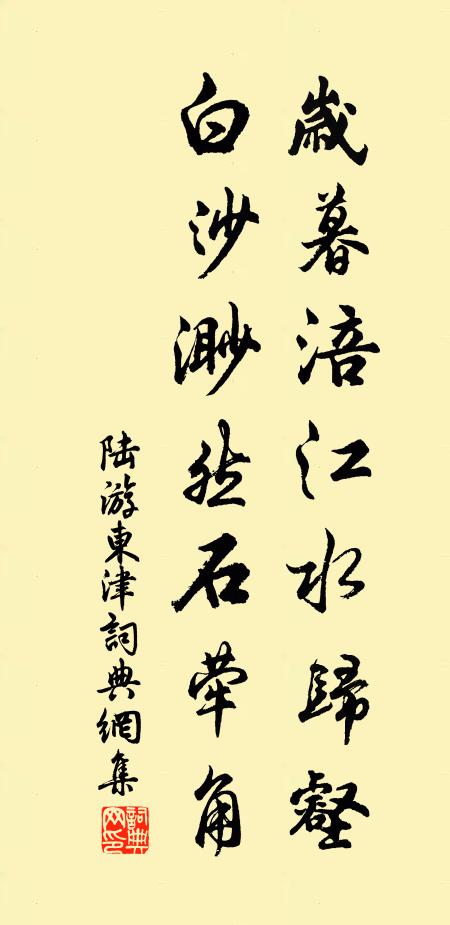 歲暮涪江水歸壑
白沙渺然石犖角
陸游東津詞典網集
詞典网印